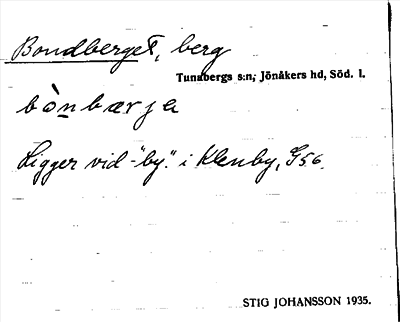 Bondberget, berg
Tunabergs s:n, Jönåkers hd, Söd. l.
bònbærja
Ligger vid "by." i Klenby, G56.
STIG JOHANSSON 1935.